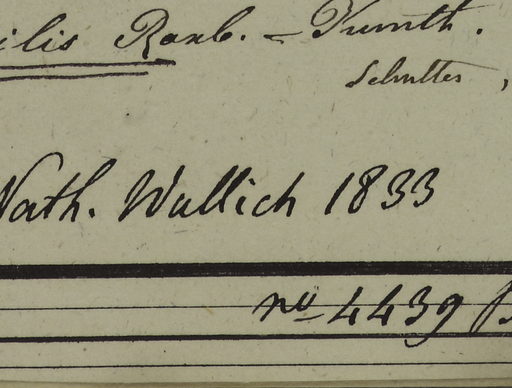 ilis Roxb. = Kunth.
Schultes,
Nath. Wallich 1833
no 4439